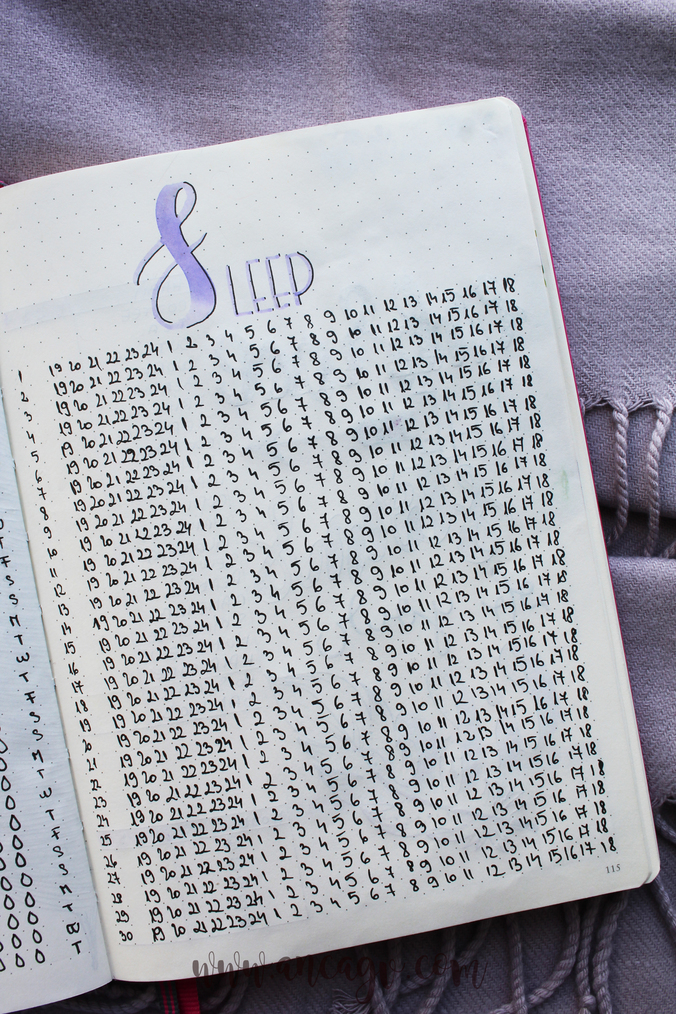 T
F
S
S
M
T
W
T
F
S
S
M
T
W
T
F
S
S
M
T
W
T
SLEEP
1 19 20 21 22 23 24 1 2 3 4 5 6 7 8 9 10 11 12 13 14 15 16 17 18
2 19 20 21 22 23 24 1 2 3 4 5 6 7 8 9 10 11 12 13 14 15 16 17 18
3 19 20 21 22 23 24 1 2 3 4 5 6 7 8 9 10 11 12 13 14 15 16 17 18
4 19 20 21 22 23 24 1 2 3 4 5 6 7 8 9 10 11 12 13 14 15 16 17 18
5 19 20 21 22 23 24 1 2 3 4 5 6 7 8 9 10 11 12 13 14 15 16 17 18
6 19 20 21 22 23 24 1 2 3 4 5 6 7 8 9 10 11 12 13 14 15 16 17 18
7 19 20 21 22 23 24 1 2 3 4 5 6 7 8 9 10 11 12 13 14 15 16 17 18
8 19 20 21 22 23 24 1 2 3 4 5 6 7 8 9 10 11 12 13 14 15 16 17 18
9 19 20 21 22 23 24 1 2 3 4 5 6 7 8 9 10 11 12 13 14 15 16 17 18
10 19 20 21 22 23 24 1 2 3 4 5 6 7 8 9 10 11 12 13 14 15 16 17 18
11 19 20 21 22 23 24 1 2 3 4 5 6 7 8 9 10 11 12 13 14 15 16 17 18
12 19 20 21 22 23 24 1 2 3 4 5 6 7 8 9 10 11 12 13 14 15 16 17 18
13 19 20 21 22 23 24 1 2 3 4 5 6 7 8 9 10 11 12 13 14 15 16 17 18
14 19 20 21 22 23 24 1 2 3 4 5 6 7 8 9 10 11 12 13 14 15 16 17 18
15 19 20 21 22 23 24 1 2 3 4 5 6 7 8 9 10 11 12 13 14 15 16 17 18
16 19 20 21 22 23 24 1 2 3 4 5 6 7 8 9 10 11 12 13 14 15 16 17 18
17 19 20 21 22 23 24 1 2 3 4 5 6 7 8 9 10 11 12 13 14 15 16 17 18
18 19 20 21 22 23 24 1 2 3 4 5 6 7 8 9 10 11 12 13 14 15 16 17 18
19 19 20 21 22 23 24 1 2 3 4 5 6 7 8 9 10 11 12 13 14 15 16 17 18
20 19 20 21 22 23 24 1 2 3 4 5 6 7 8 9 10 11 12 13 14 15 16 17 18
21 19 20 21 22 23 24 1 2 3 4 5 6 7 8 9 10 11 12 13 14 15 16 17 18
22 19 20 21 22 23 24 1 2 3 4 5 6 7 8 9 10 11 12 13 14 15 16 17 18
23 19 20 21 22 23 24 1 2 3 4 5 6 7 8 9 10 11 12 13 14 15 16 17 18
24 19 20 21 22 23 24 1 2 3 4 5 6 7 8 9 10 11 12 13 14 15 16 17 18
25 19 20 21 22 23 24 1 2 3 4 5 6 7 8 9 10 11 12 13 14 15 16 17 18
26 19 20 21 22 23 24 1 2 3 4 5 6 7 8 9 10 11 12 13 14 15 16 17 18
27 19 20 21 22 23 24 1 2 3 4 5 6 7 8 9 10 11 12 13 14 15 16 17 18
28 19 20 21 22 23 24 1 2 3 4 5 6 7 8 9 10 11 12 13 14 15 16 17 18
29 19 20 21 22 23 24 1 2 3 4 5 6 7 8 9 10 11 12 13 14 15 16 17 18
30 19 20 21 22 23 24 1 2 3 4 5 6 7 8 9 10 11 12 13 14 15 16 17 18
115